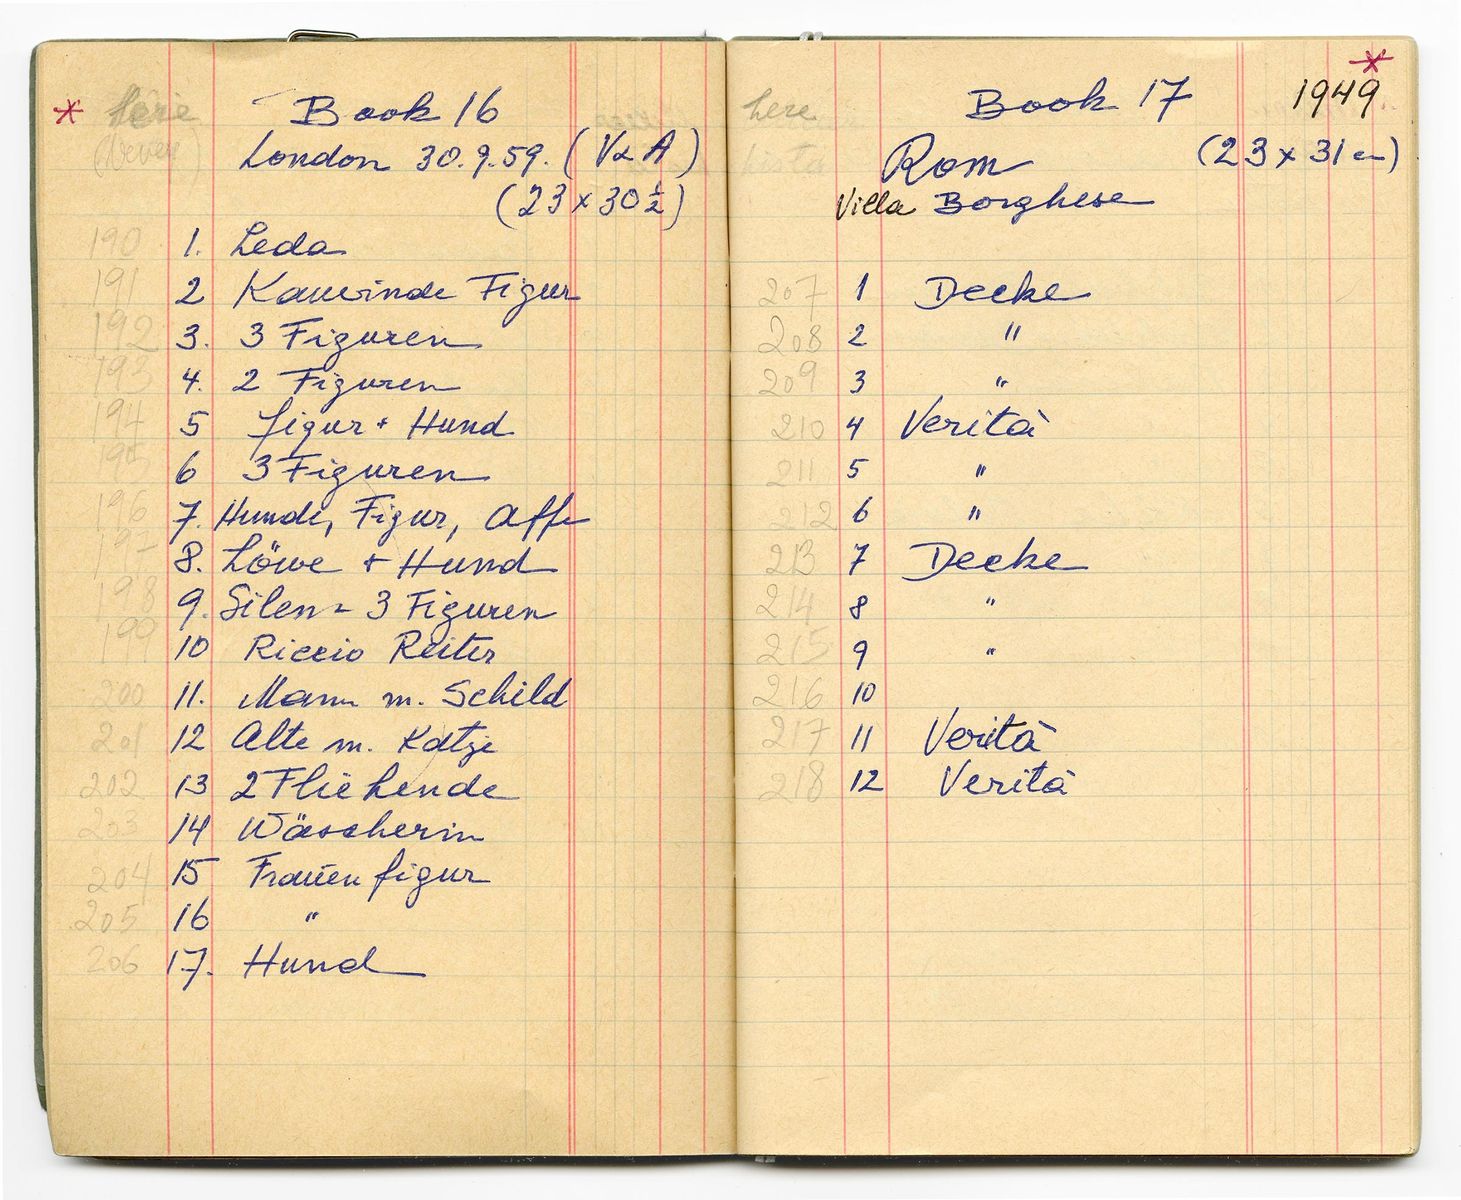 * here Book 16
(Vevey) London 30.9.59. (V & A)
(23 x 30 ½)
190 1. Leda
191 2 Kauernde Figur
192 3. 3 Figuren
193 4. 2 Figuren
194 5 figur + Hund
195 6 3 Figuren
196 7. Hunde, Figur, Affe
197 8. Löwe + Hund
198 9. Silen - 3 Figuren
199 10 Riccio Reiter
200 11. Mann m. Schild
201 12 Alte m. Katze
202 13 2 Fliehende
203 14 Wäscherin
204 15 Frauenfigur
205 16 "
206 17. Hund
*
here Book 17 1949
Rom (23 x 31 cm)
Villa Borghese
207 1 Decke
208 2 "
209 3 "
210 4 Verità
211 5 "
212 6 "
213 7 Decke
214 8 "
215 9 "
216 10
217 11 Verità
218 12 Verità